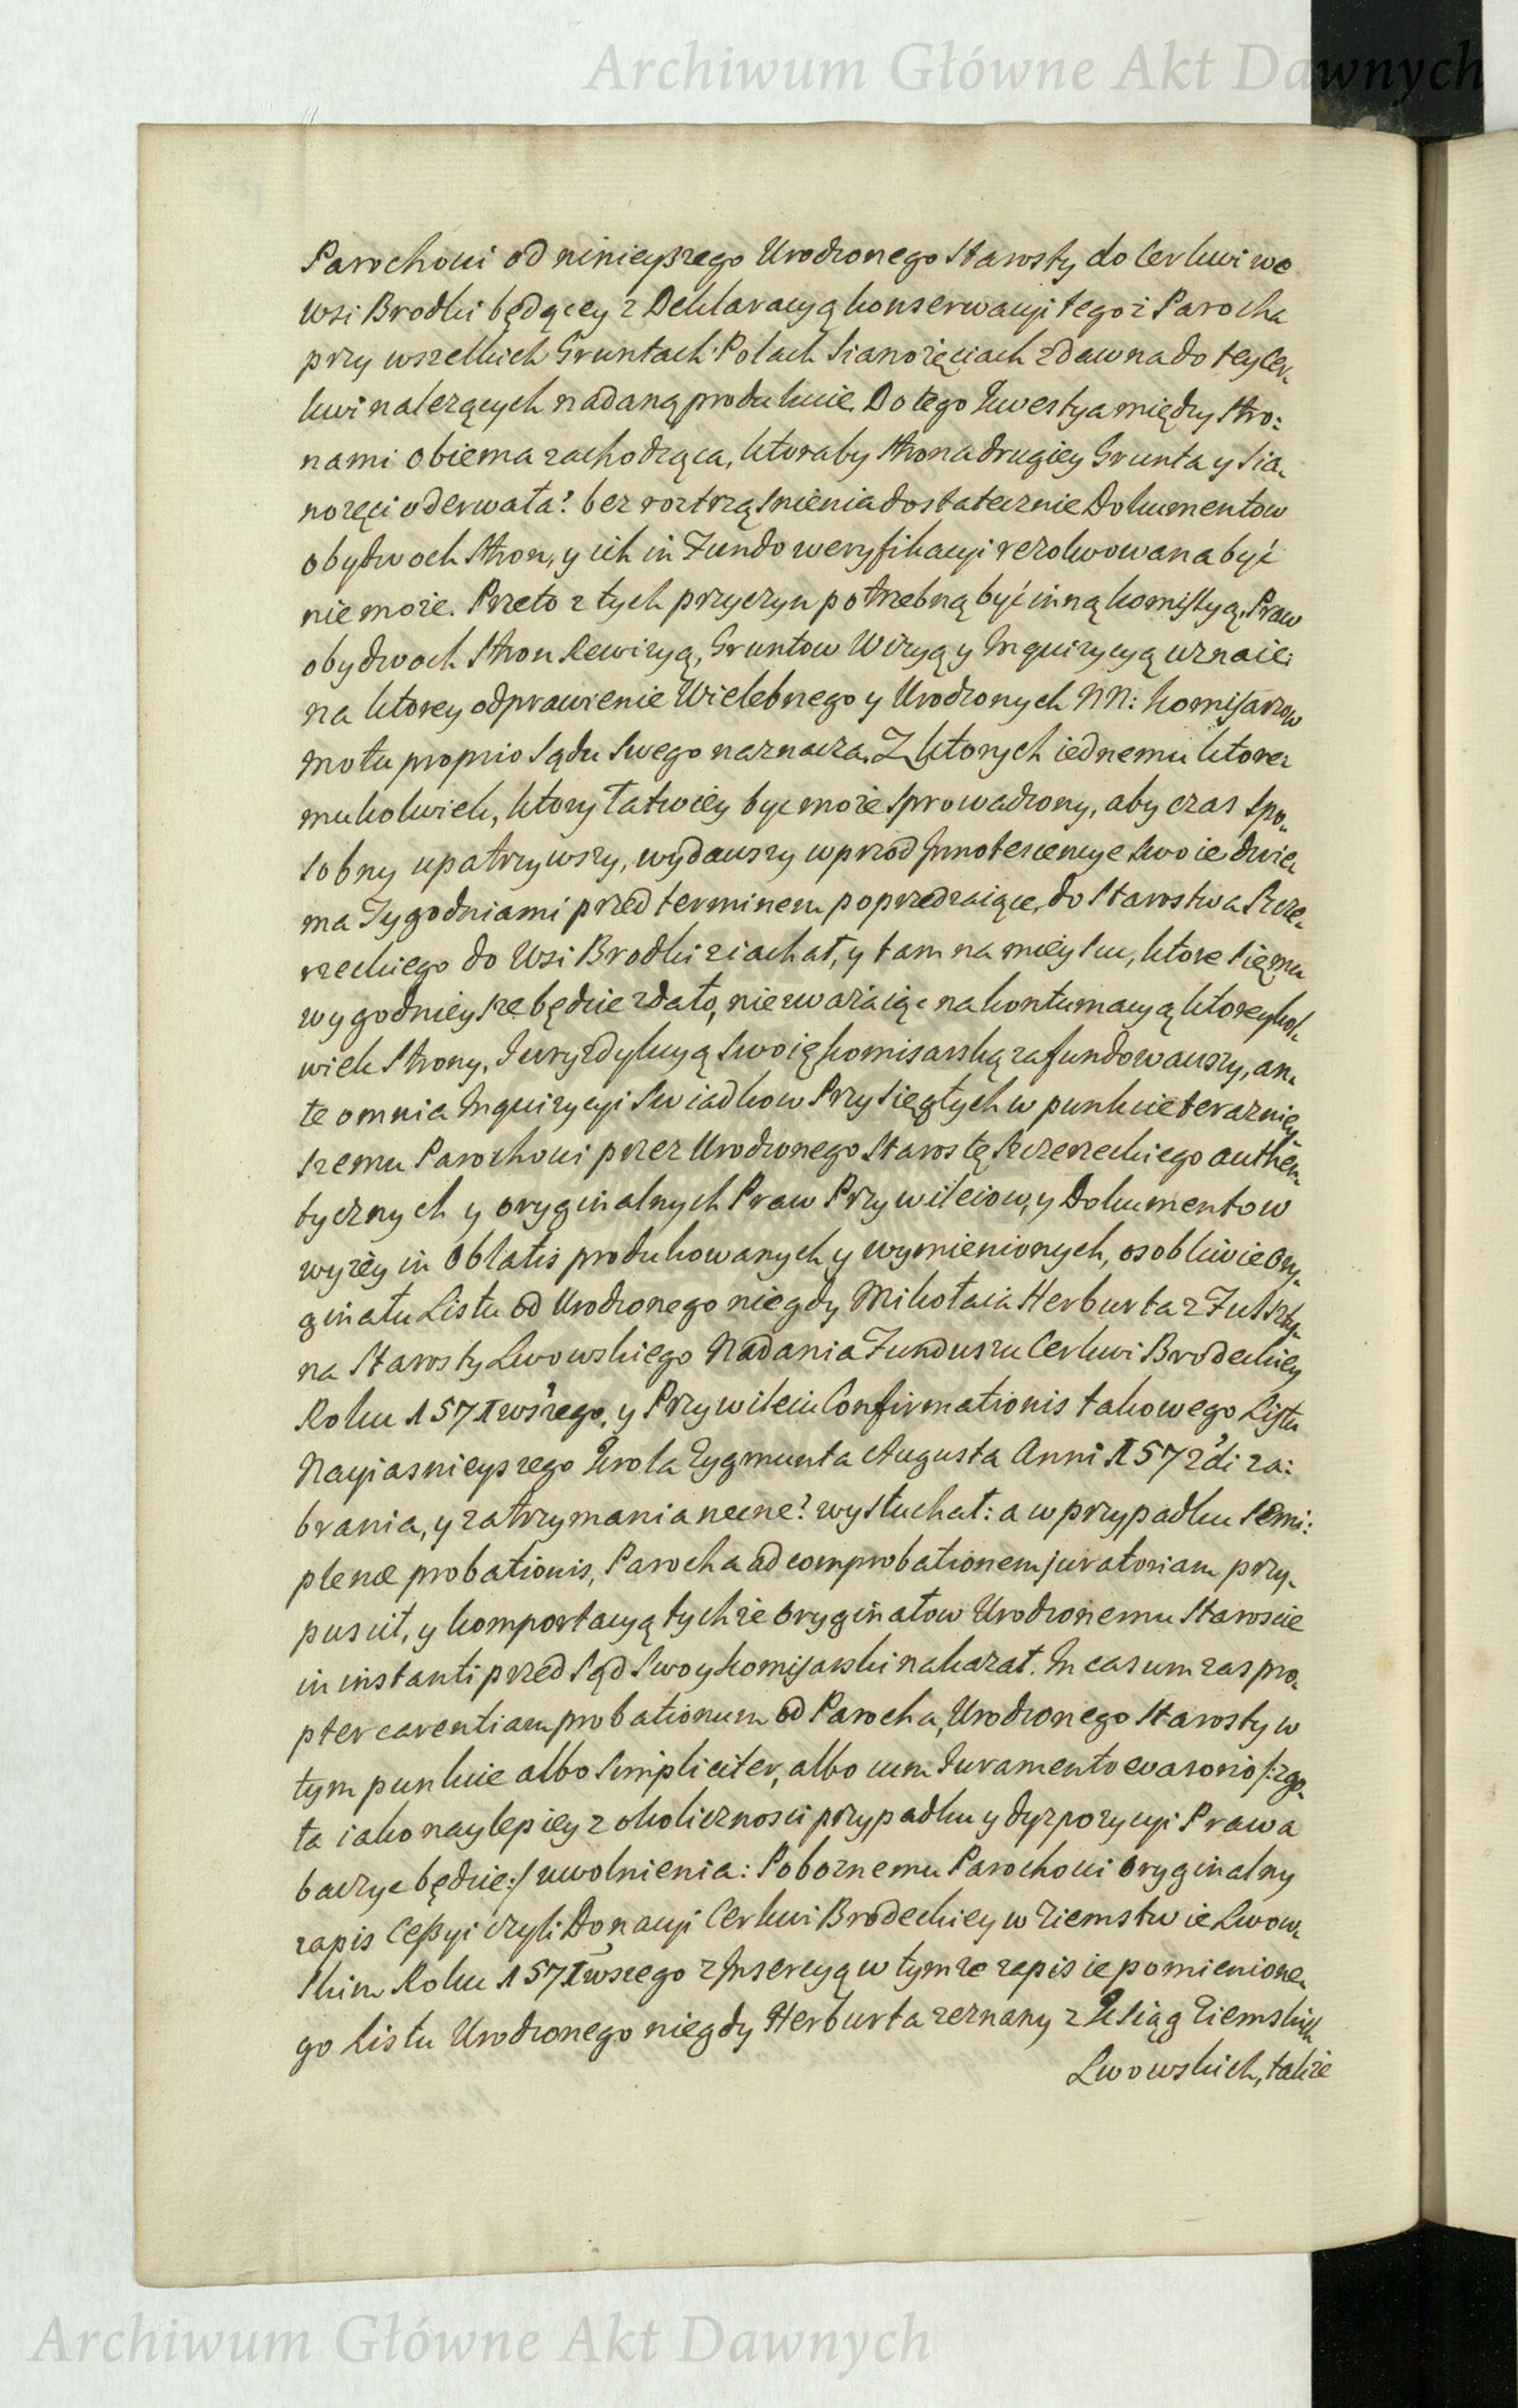 Archiwum Główne Akt Dawnych
Parochowi od ninieyszego Urodzonego Starosty do Cerkwi we
Wsi Brodki będącey z Deklaracyą konserwacyi tegoż Parocha
przy wszelkich Gruntach Polach Sianożęciach zdawna do tey Cer-
kwi należących nadaną produkuie. Do tego Kwestya między Stro:
nami obiema zachodząca, ktoraby Strona drugiey Grunta y Sia-
nożęci oderwała? bez roztrząśnienia dostatecznie Dokumentow
obydwoch Stron, y ich in Fundo weryfikacyi rezolwowana być
nie może. Przeto z tych przyczyn potrzebną być inną komissyą, Praw
obydwoch Stron Rewizyą, Gruntow Wizyą y Inquizycyą uznaie:
na ktorey odprawienie Wielebnego y Urodzonych NN: Komisarzow
motu proprio Sądu Swego naznacza. Z ktorych iednemu ktore-
mukolwiek, ktory łatwiey być może sprowadzony, aby czas spo-
sobny upatrzywszy, wydawszy wprzod Innotescencye swoie dwie-
ma Tygodniami przed terminem poprzedzaiące, do Starostwa Szcze-
rzeckiego do Wsi Brodki ziachał, y tam na mieyscu, ktore się mu
wygodnieysze będzie zdało, nie zważaiąc na kontumacyą ktoreykol-
wiek Strony, Juryzdykcyą Swoię komisarską zafundowawszy, an-
te omnia Inquizycyi Swiadkow Przysięgłych w punkcie terazniey-
szemu Parochowi przez Urodzonego Starostę Szczerzeckiego authen-
tycznych y oryginalnych Praw Przywileiow, y Dokumentow
wyżey in Oblatis produkowanych y wymienionych, osobliwie Ory-
ginału Listu od Urodzonego niegdy Mikołaia Herburta z Fulszty-
na Starosty Lwowskiego Nadania Funduszu Cerkwi Brodeckiey
Roku 1571wszego, y Przywileiu Confirmationis takowego Listu
Nayiasnieyszego Krola Zygmunta Augusta Anni 1572di za:
brania, y zatrzymania necne? wysłuchał: a w przypadku semi:
plenæ probationis, Parocha ad comprobationem juratoriam przy-
puscił, y komportacyą tychże oryginałow Urodzonemu Staroscie
in instanti przed Sąd Swoy komisarski nakazał. In casum zas pro-
pter carentiam probationum od Parocha, Urodzonego Starosty w
tym punkcie albo simpliciter, albo cum Juramento evasorio /:zgo-
ła iako naylepiey z okolicznosci przypadku y dyzpozycyi Prawa
baczyc będzie:/ uwolnienia: Pobożnemu Parochowi oryginalny
zapis Cessyi czyli Donacyi Cerkwi Brodeckiey w Ziemstwie Lwow-
skim Roku 1571wszego z Insercyą w tymże zapisie pomienione-
go Listu Urodzonego niegdy Herburta zeznany z Xsiąg Ziemskich
Lwowskich, także
Archiwum Główne Akt Dawnych